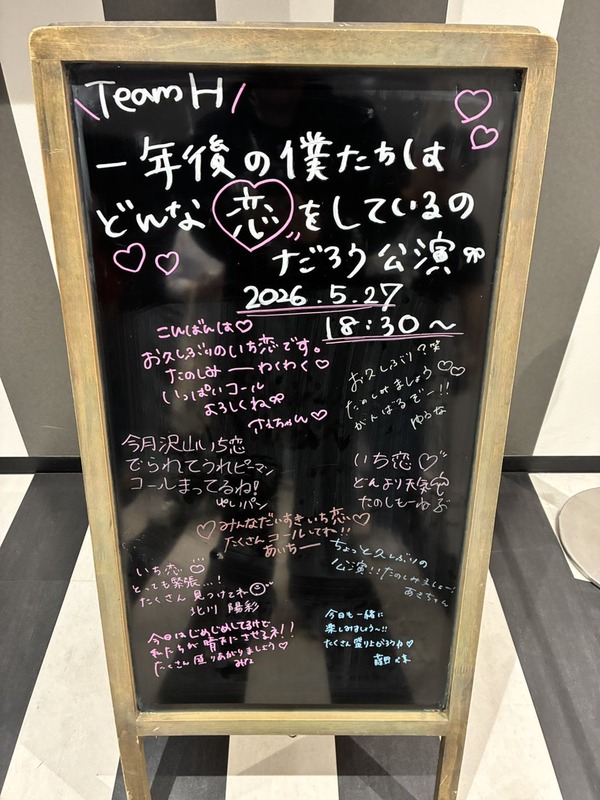 Team H
一年後の僕たちは
どんな恋をしているの
だろう公演
2026.5.27
18:30〜
こんばんは♡
お久しぶりのいち恋です。
たのしみーーわくわく♡
いっぱいコール
よろしくね
さえちゃん♡
お久しぶり?笑
たのしみましょう♡♡
がんばるぞー!!
ゆうな
今月沢山いち恋
でられてうれピーマン
コールまってるね!
いち恋♡
どんより天気
たのしもーねぶ
♡みんなだいすきいち恋♡
たくさんコールしてね!!
あいちー
ちょっと久しぶりの
公演!!たのしみましょー!
あきちゃん
いち恋♡
とっても緊張…!
たくさん見つけてネ
北川 陽彩
今日はじめじめしてるけど、
私たちが晴れにさせるネ!!
たくさん盛りあがりましょう♡
今日も一緒に
楽しみましょう〜!!
たくさん盛り上がろうね♡